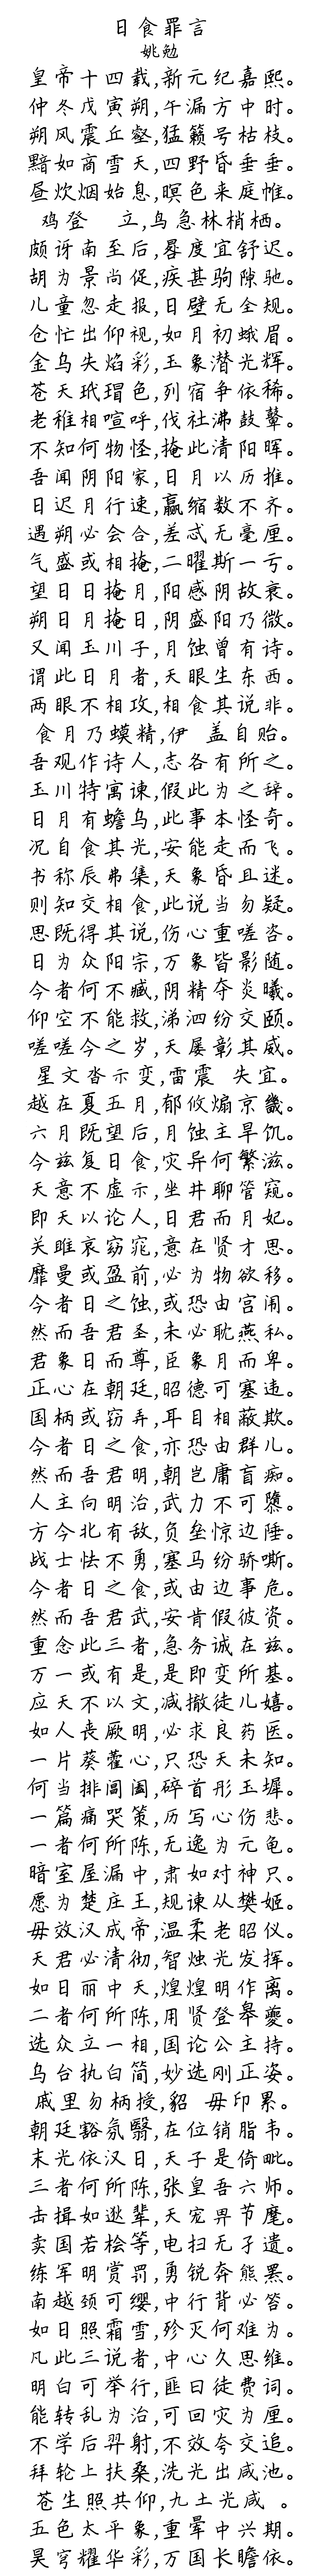 日食罪言
姚勉
皇帝十四载,新元纪嘉熙。
仲冬戊寅朔,午漏方中时。
朔风震丘壑,猛籁号枯枝。
黯如商雪天,四野昏垂垂。
昼炊烟始息,暝色来庭帷。
鸡登 立,乌急林梢栖。
颇讶南至后,晷度宜舒迟。
胡为景尚促,疾甚驹隙驰。
儿童忽走报,日壁无全规。
仓忙出仰视,如月初蛾眉。
金乌失焰彩,玉象潜光辉。
苍天玳瑁色,列宿争依稀。
老稚相喧呼,伐社沸鼓鼙。
不知何物怪,掩此清阳晖。
吾闻阴阳家,日月以历推。
日迟月行速,赢缩数不齐。
遇朔必会合,差忒无毫厘。
气盛或相掩,二曜斯一亏。
望日日掩月,阳感阴故衰。
朔日月掩日,阴盛阳乃微。
又闻玉川子,月蚀曾有诗。
谓此日月者,天眼生东西。
两眼不相攻,相食其说非。
食月乃蟆精,伊 盖自贻。
吾观作诗人,志各有所之。
玉川特寓谏,假此为之辞。
日月有蟾乌,此事本怪奇。
况自食其光,安能走而飞。
书称辰弗集,天象昏且迷。
则知交相食,此说当勿疑。
思既得其说,伤心重嗟咨。
日为众阳宗,万象皆影随。
今者何不臧,阴精夺炎曦。
仰空不能救,涕泗纷交颐。
嗟嗟今之岁,天屡彰其威。
星文沓示变,雷震 失宜。
越在夏五月,郁攸煽京畿。
六月既望后,月蚀主旱饥。
今兹复日食,灾异何繁滋。
天意不虚示,坐井聊管窥。
即天以论人,日君而月妃。
关雎哀窈窕,意在贤才思。
靡曼或盈前,必为物欲移。
今者日之蚀,或恐由宫闱。
然而吾君圣,未必耽燕私。
君象日而尊,臣象月而卑。
正心在朝廷,昭德可塞违。
国柄或窃弄,耳目相蔽欺。
今者日之食,亦恐由群儿。
然而吾君明,朝岂庸盲痴。
人主向明治,武力不可隳。
方今北有敌,负垒惊边陲。
战士怯不勇,塞马纷骄嘶。
今者日之食,或由边事危。
然而吾君武,安肯假彼资。
重念此三者,急务诚在兹。
万一或有是,是即变所基。
应天不以文,减撤徒儿嬉。
如人丧厥明,必求良药医。
一片葵藿心,只恐天未知。
何当排阊阖,碎首彤玉墀。
一篇痛哭策,历写心伤悲。
一者何所陈,无逸为元龟。
暗室屋漏中,肃如对神只。
愿为楚庄王,规谏从樊姬。
毋效汉成帝,温柔老昭仪。
天君必清彻,智烛光发挥。
如日丽中天,煌煌明作离。
二者何所陈,用贤登皋夔。
选众立一相,国论公主持。
乌台执白简,妙选刚正姿。
戚里勿柄授,貂 毋印累。
朝廷豁氛翳,在位销脂韦。
末光依汉日,天子是倚毗。
三者何所陈,张皇吾六师。
击揖如逖辈,天宠畀节麾。
卖国若桧等,电扫无孑遗。
练军明赏罚,勇锐奔熊罴。
南越颈可缨,中行背必笞。
如日照霜雪,殄灭何难为。
凡此三说者,中心久思维。
明白可举行,匪曰徒费词。
能转乱为治,可回灾为厘。
不学后羿射,不效夸交追。
拜轮上扶桑,洗光出咸池。
苍生照共仰,九土光咸 。
五色太平象,重晕中兴期。
昊穹耀华彩,万国长瞻依。